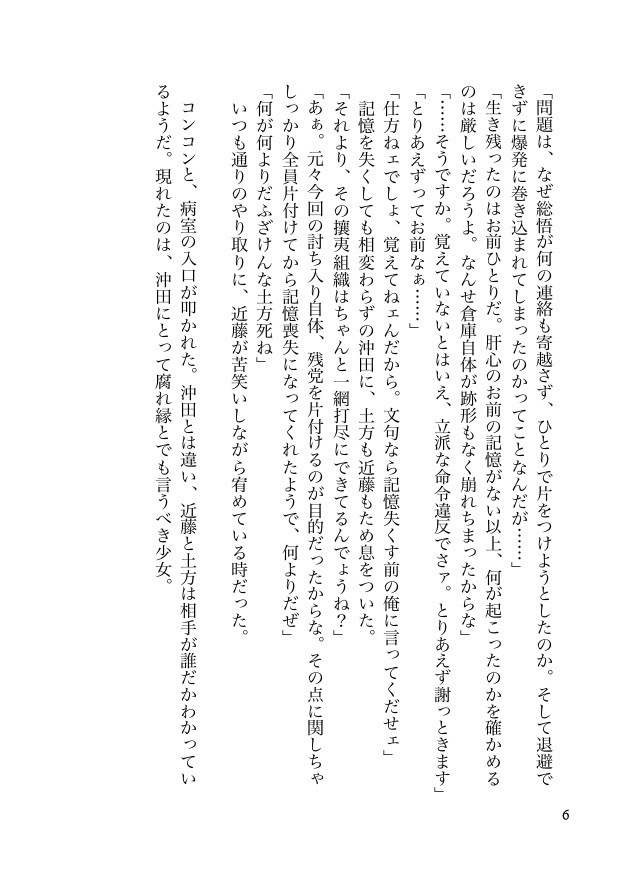 「問題は、なぜ総悟が何の連絡も寄越さず、ひとりで片をつけようとしたのか。そして退避で
きずに爆発に巻き込まれてしまったのかってことなんだが……」
「生き残ったのはお前ひとりだ。肝心のお前の記憶がない以上、何が起こったのかを確かめる
のは厳しいだろうよ。なんせ倉庫自体が跡形もなく崩れちまったからな」
「……そうですか。覚えていないとはいえ、立派な命令違反でさァ。とりあえず謝っときます」
「とりあえずってお前なぁ……」
「仕方ねェでしょ、覚えてねェんだから。文句なら記憶失くす前の俺に言ってくだせェ」
記憶を失くしても相変わらずの沖田に、土方も近藤もため息をついた。
「それより、その攘夷組織はちゃんと一網打尽にできてるんでしょうね？」
「あぁ。元々今回の討ち入り自体、残党を片付けるのが目的だったからな。その点に関しちゃ
しっかり全員片付けてから記憶喪失になってくれたようで、何よりだぜ」
「何が何よりだふざけんな土方死ね」
いつも通りのやり取りに、近藤が苦笑いしながら宥めている時だった。
コンコンと、病室の入口が叩かれた。沖田とは違い、近藤と土方は相手が誰だかわかってい
るようだ。現れたのは、沖田にとって腐れ縁とでも言うべき少女。
6